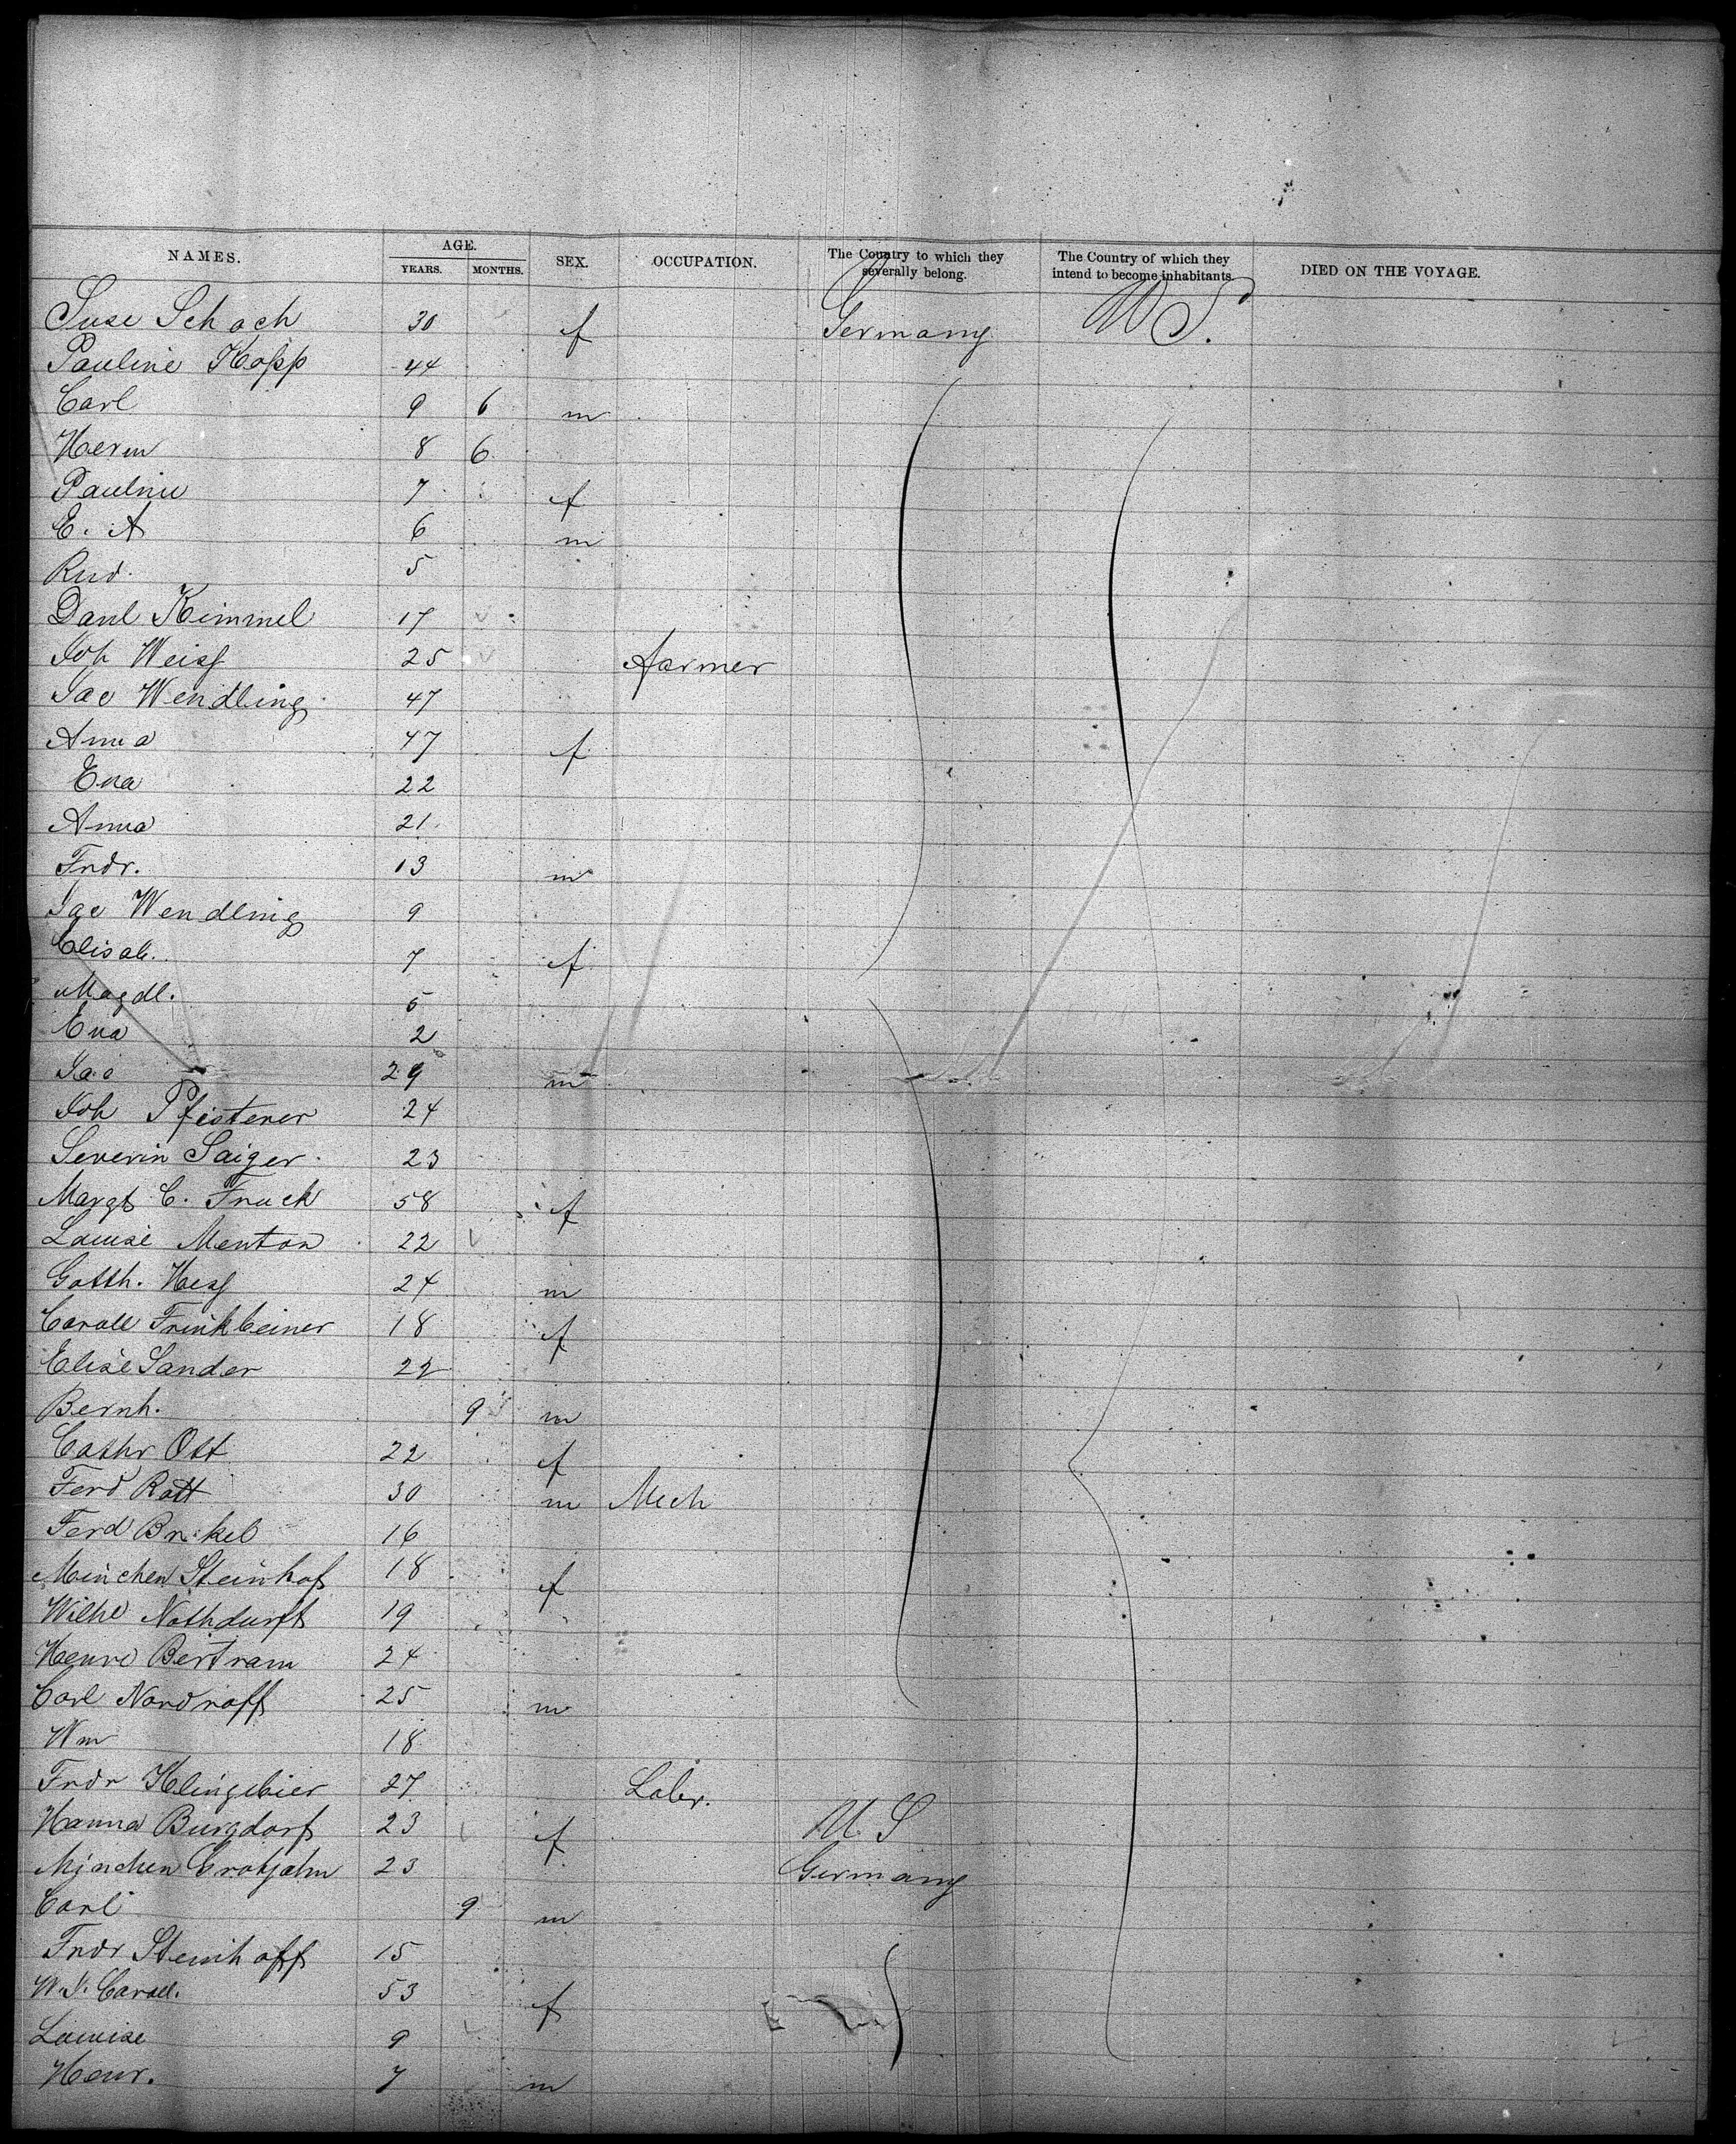 NAMES. AGE. YEARS. MONTHS. SEX. OCCUPATION. The Country to which they severally belong. The Country of which they intend to become inhabitants. DIED ON THE VOYAGE.
Suse Schoch 30 f Germany U S.
Pauline Kopp 44
Carl 9 6 m
Herm 8 6
Pauline 7 f
E. A 6 m
Rud. 5
Danl Kimmel 17
Joh Weiss 25 farmer
Jac Wendling 47
Anna 47 f
Eva 22
Anna 21
Frdr. 13 m
Jac Wendling 9
Elisab. 7 f
Magdl. 5
Eva 2
Jac 29 m
Joh Pfisterer 24
Severin Saiger 23
Margt C. Frack 58 f
Louise Menton 22
Gotth. Hess 24 m
Caroll Finkbeiner 18 f
Elise Sander 22
Bernh. 9 m
Cathr Ott 22 f
Ferd Rott 30 m Mech
Ferd 16
Minchen Steinhof 18 f
Wilhe Nothdurft 19
Henre Bertram 24
Carl Nordhoff 25 m
Wm 18
Frdr Klingebier 27 Labr.
Hanna Burgdorf 23 f U S
Minchen Grotjahn 23 Germany
Carl 9 m
Frdr Steinhoff 15
Caroll. 53 f
Louise 9
Henr. 7 m